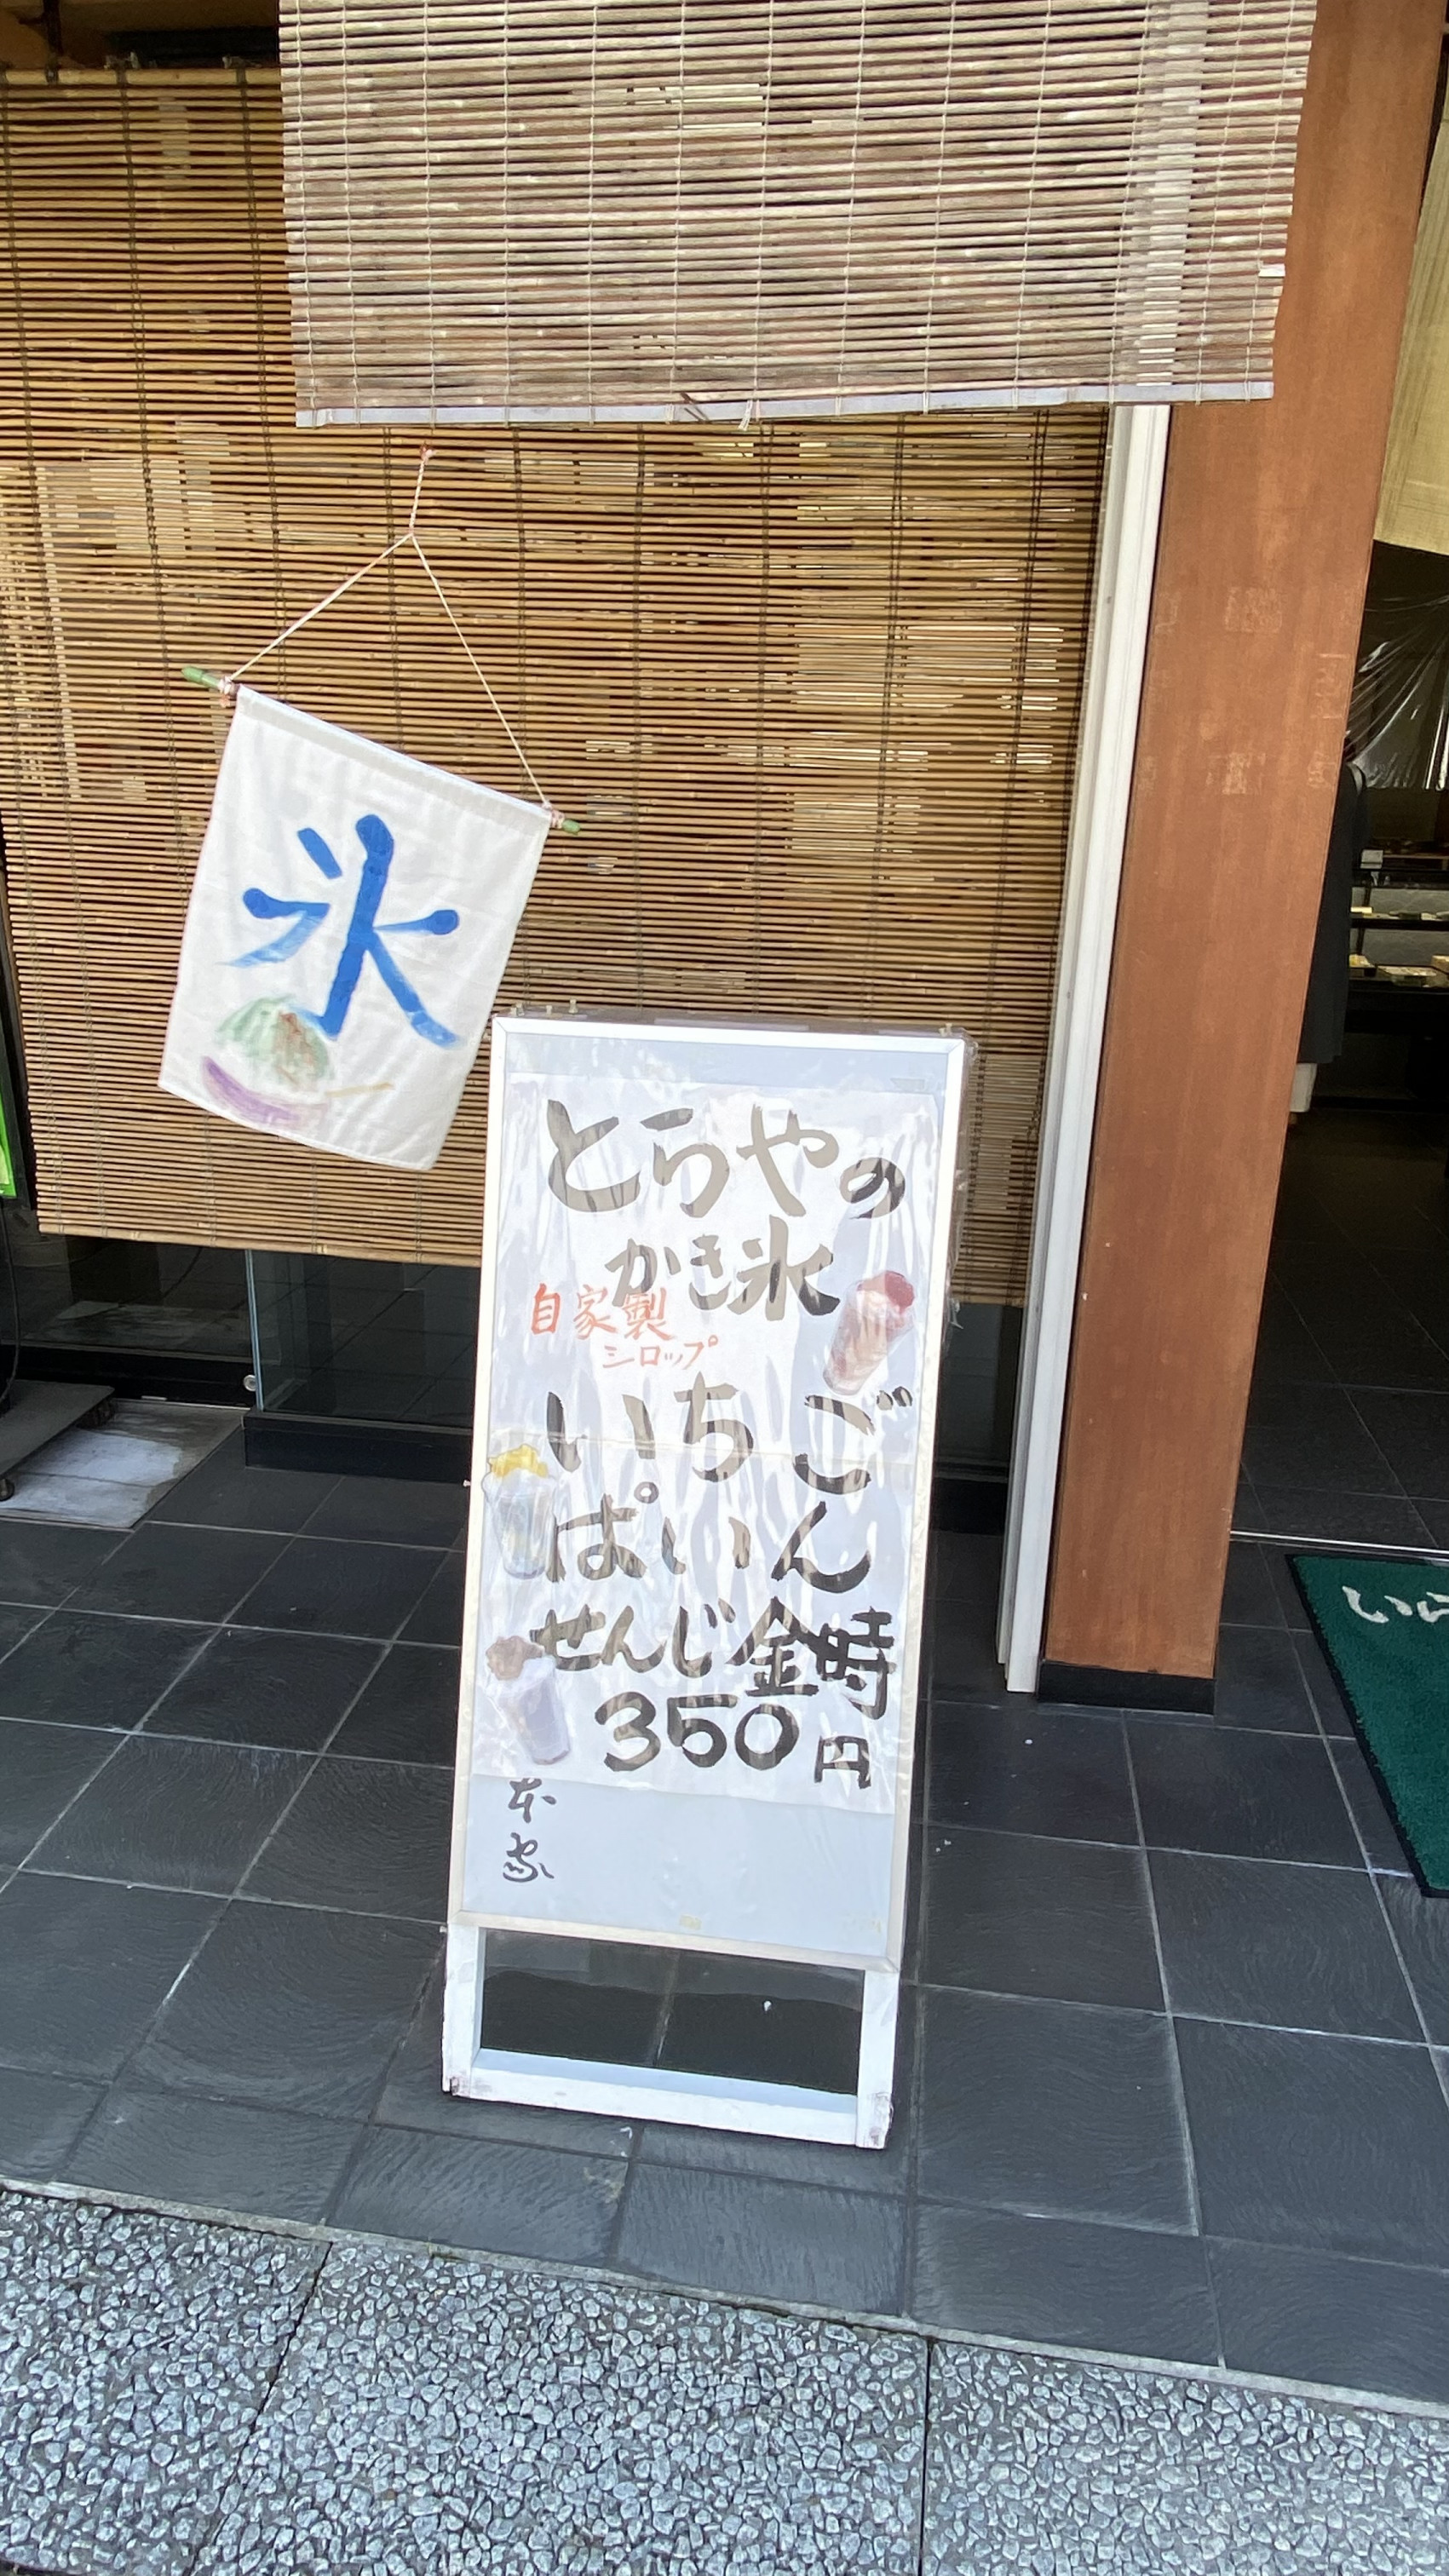 氷
とらやの
かき氷
自家製
シロップ
いちご
ぱいん
せんじ金時
350円
本家